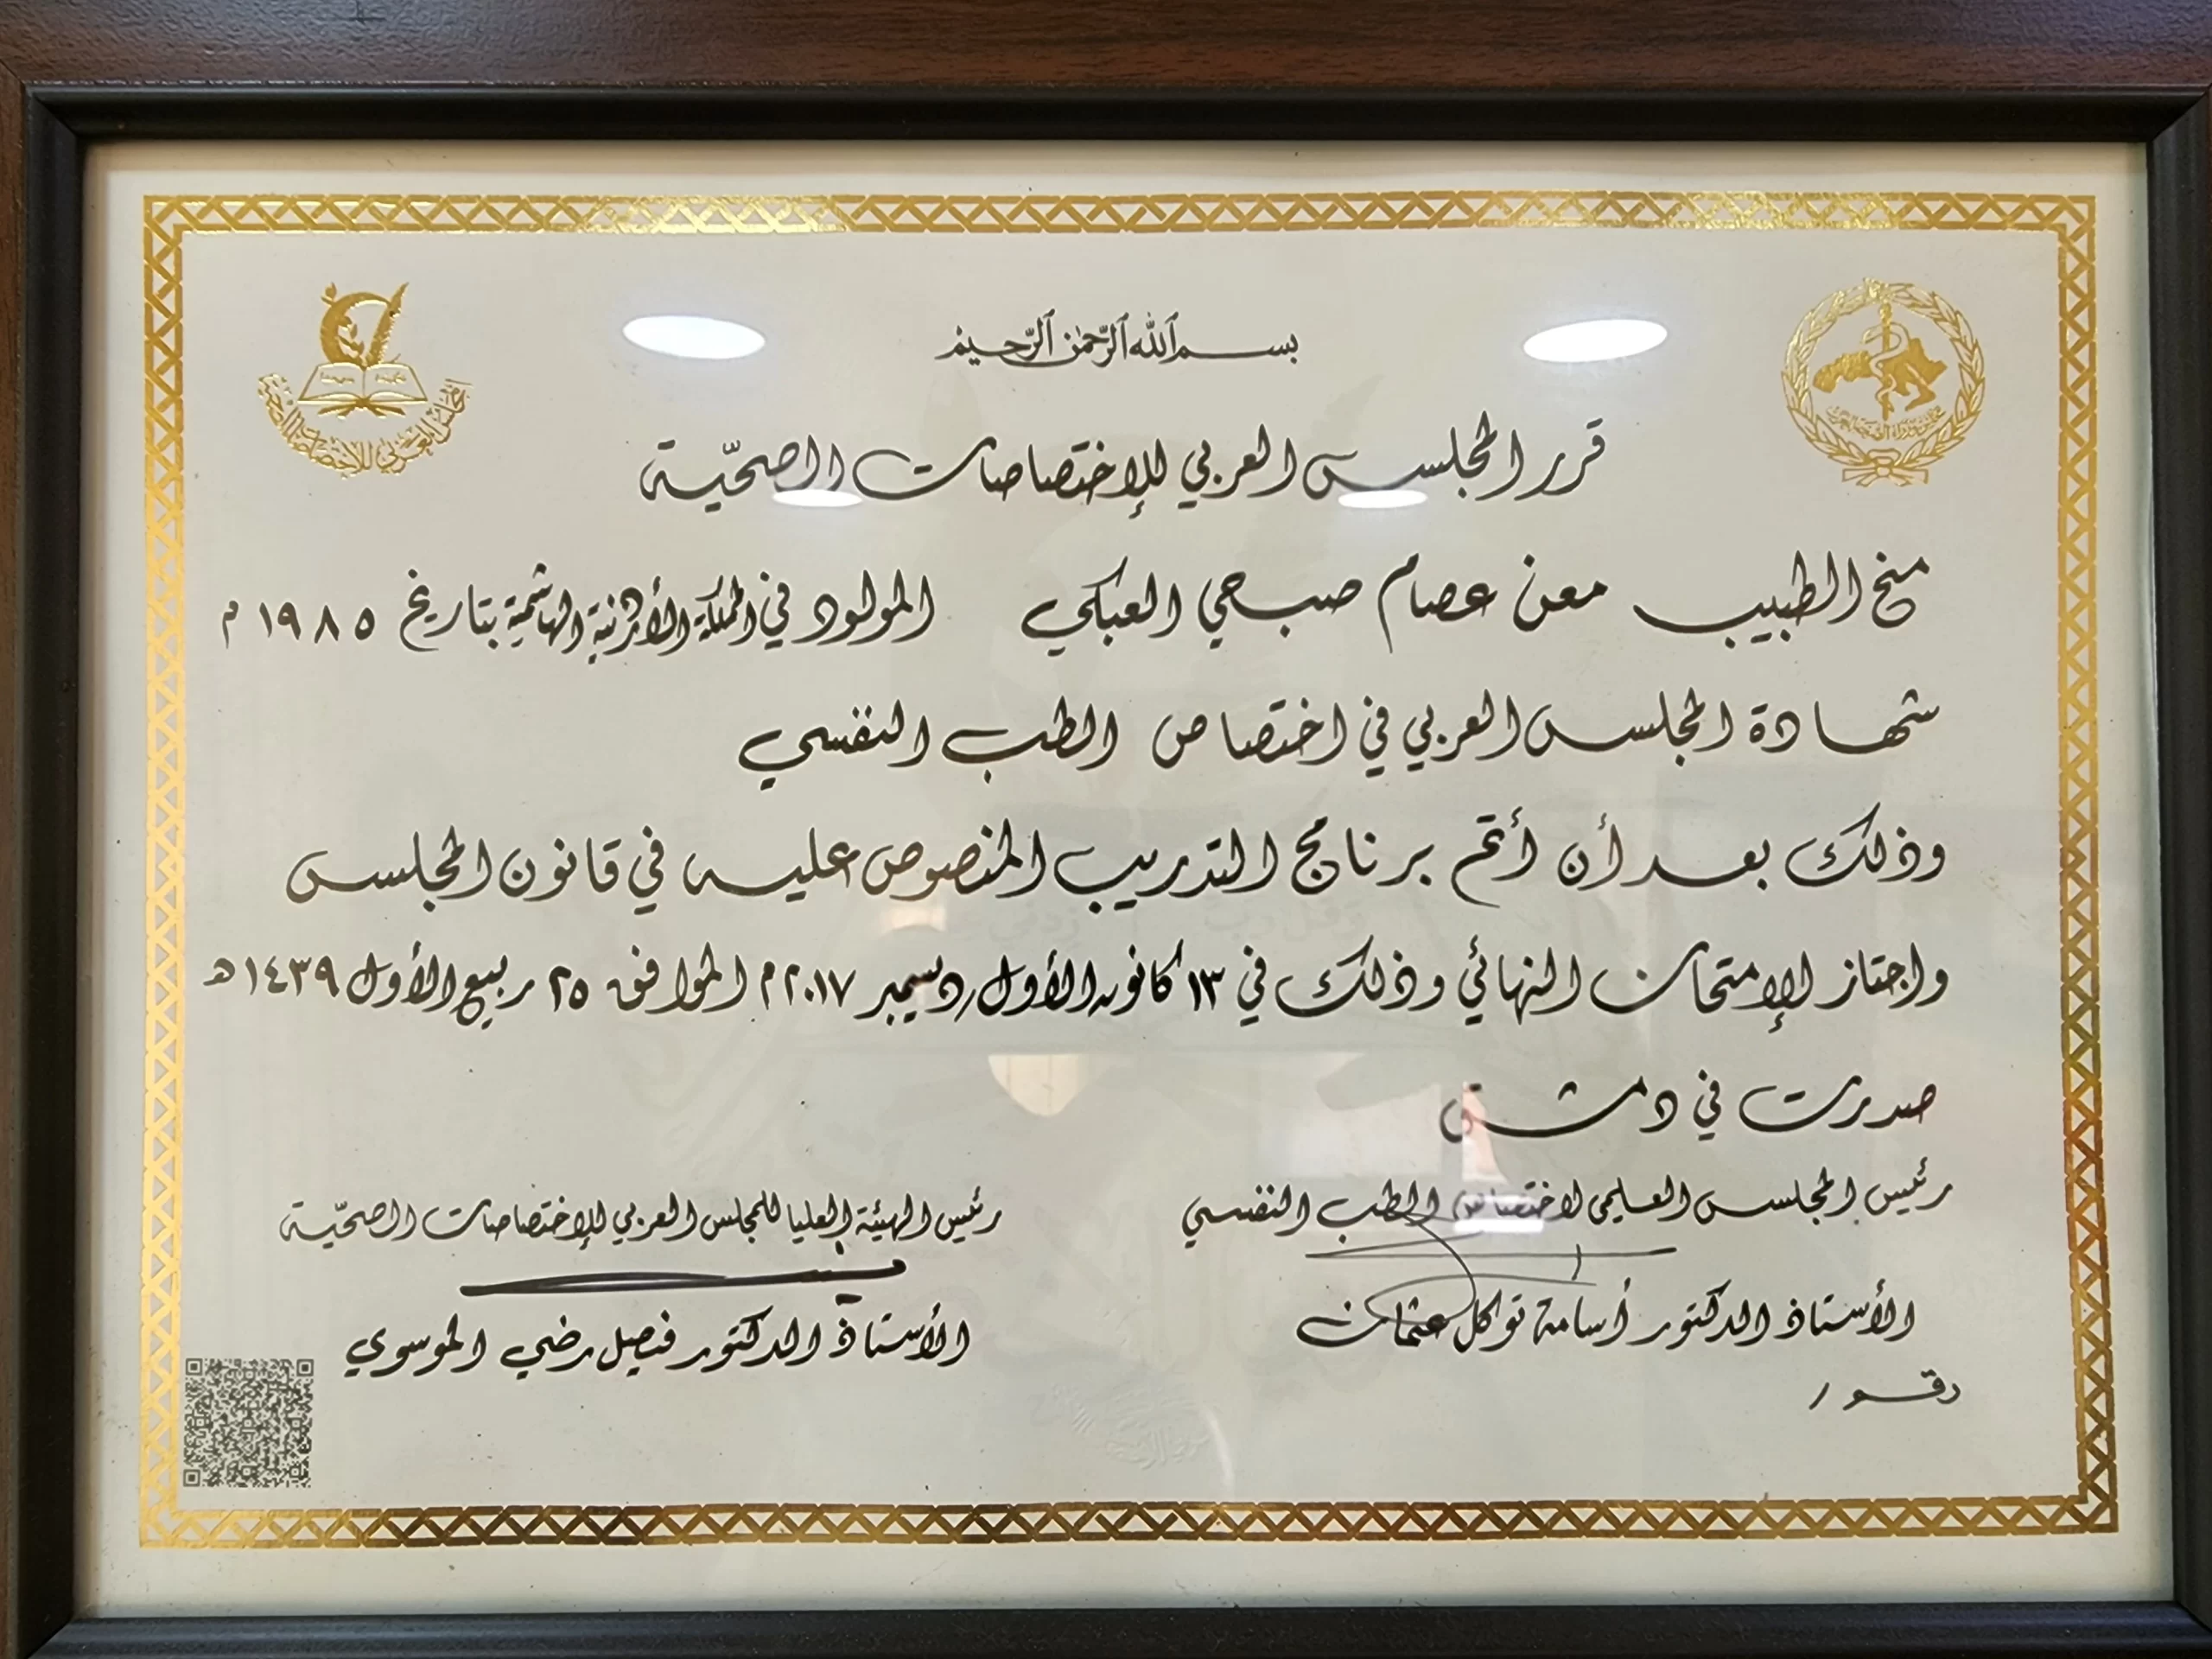 بسم الله الرحمن الرحيم
قرر المجلس العربي للإختصاصات الصحيّة
منح الطبيب معن عصام صبحي العبكي المولود في المملكة الأردنية الهاشمية بتاريخ ١٩٨٥ م
شهادة المجلس العربي في اختصاص الطب النفسي
وذلك بعد أن أتم برنامج التدريب المنصوص عليه في قانون المجلس
واجتاز الإمتحان النهائي وذلك في ١٣ كانون الأول/ديسمبر ٢٠١٧ م الموافق ٢٥ ربيع الأول ١٤٣٩ هـ
صدرت في دمشق
رئيس المجلس العلمي لاختصاص الطب النفسي
الأستاذ الدكتور أسامة توكل عثمان
رئيس الهيئة العليا للمجلس العربي للإختصاصات الصحيّة
الأستاذ الدكتور فيصل رضي الموسوي
المجلس العربي للإختصاصات الصحية